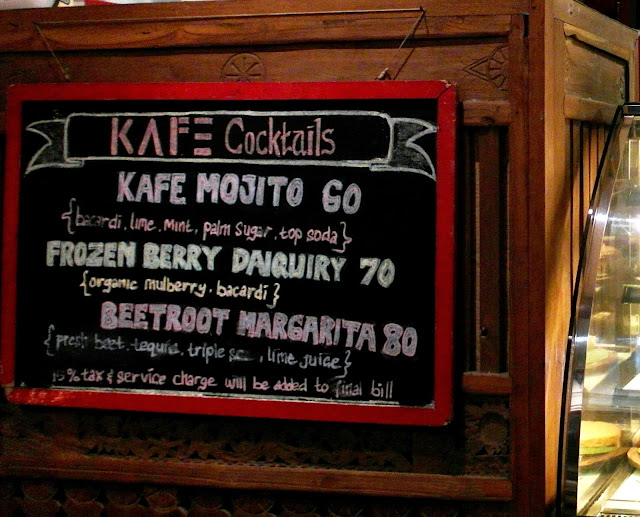 KAFE Cocktails
KAFE MOJITO 60
{bacardi, lime, Mint, palm sugar, top soda}
FROZEN BERRY DAIQUIRY 70
{organic mulberry, bacardi}
BEETROOT MARGARITA 80
{fresh beet, tequila, triple , lime juice}
15% tax & service charge will be added to final bill